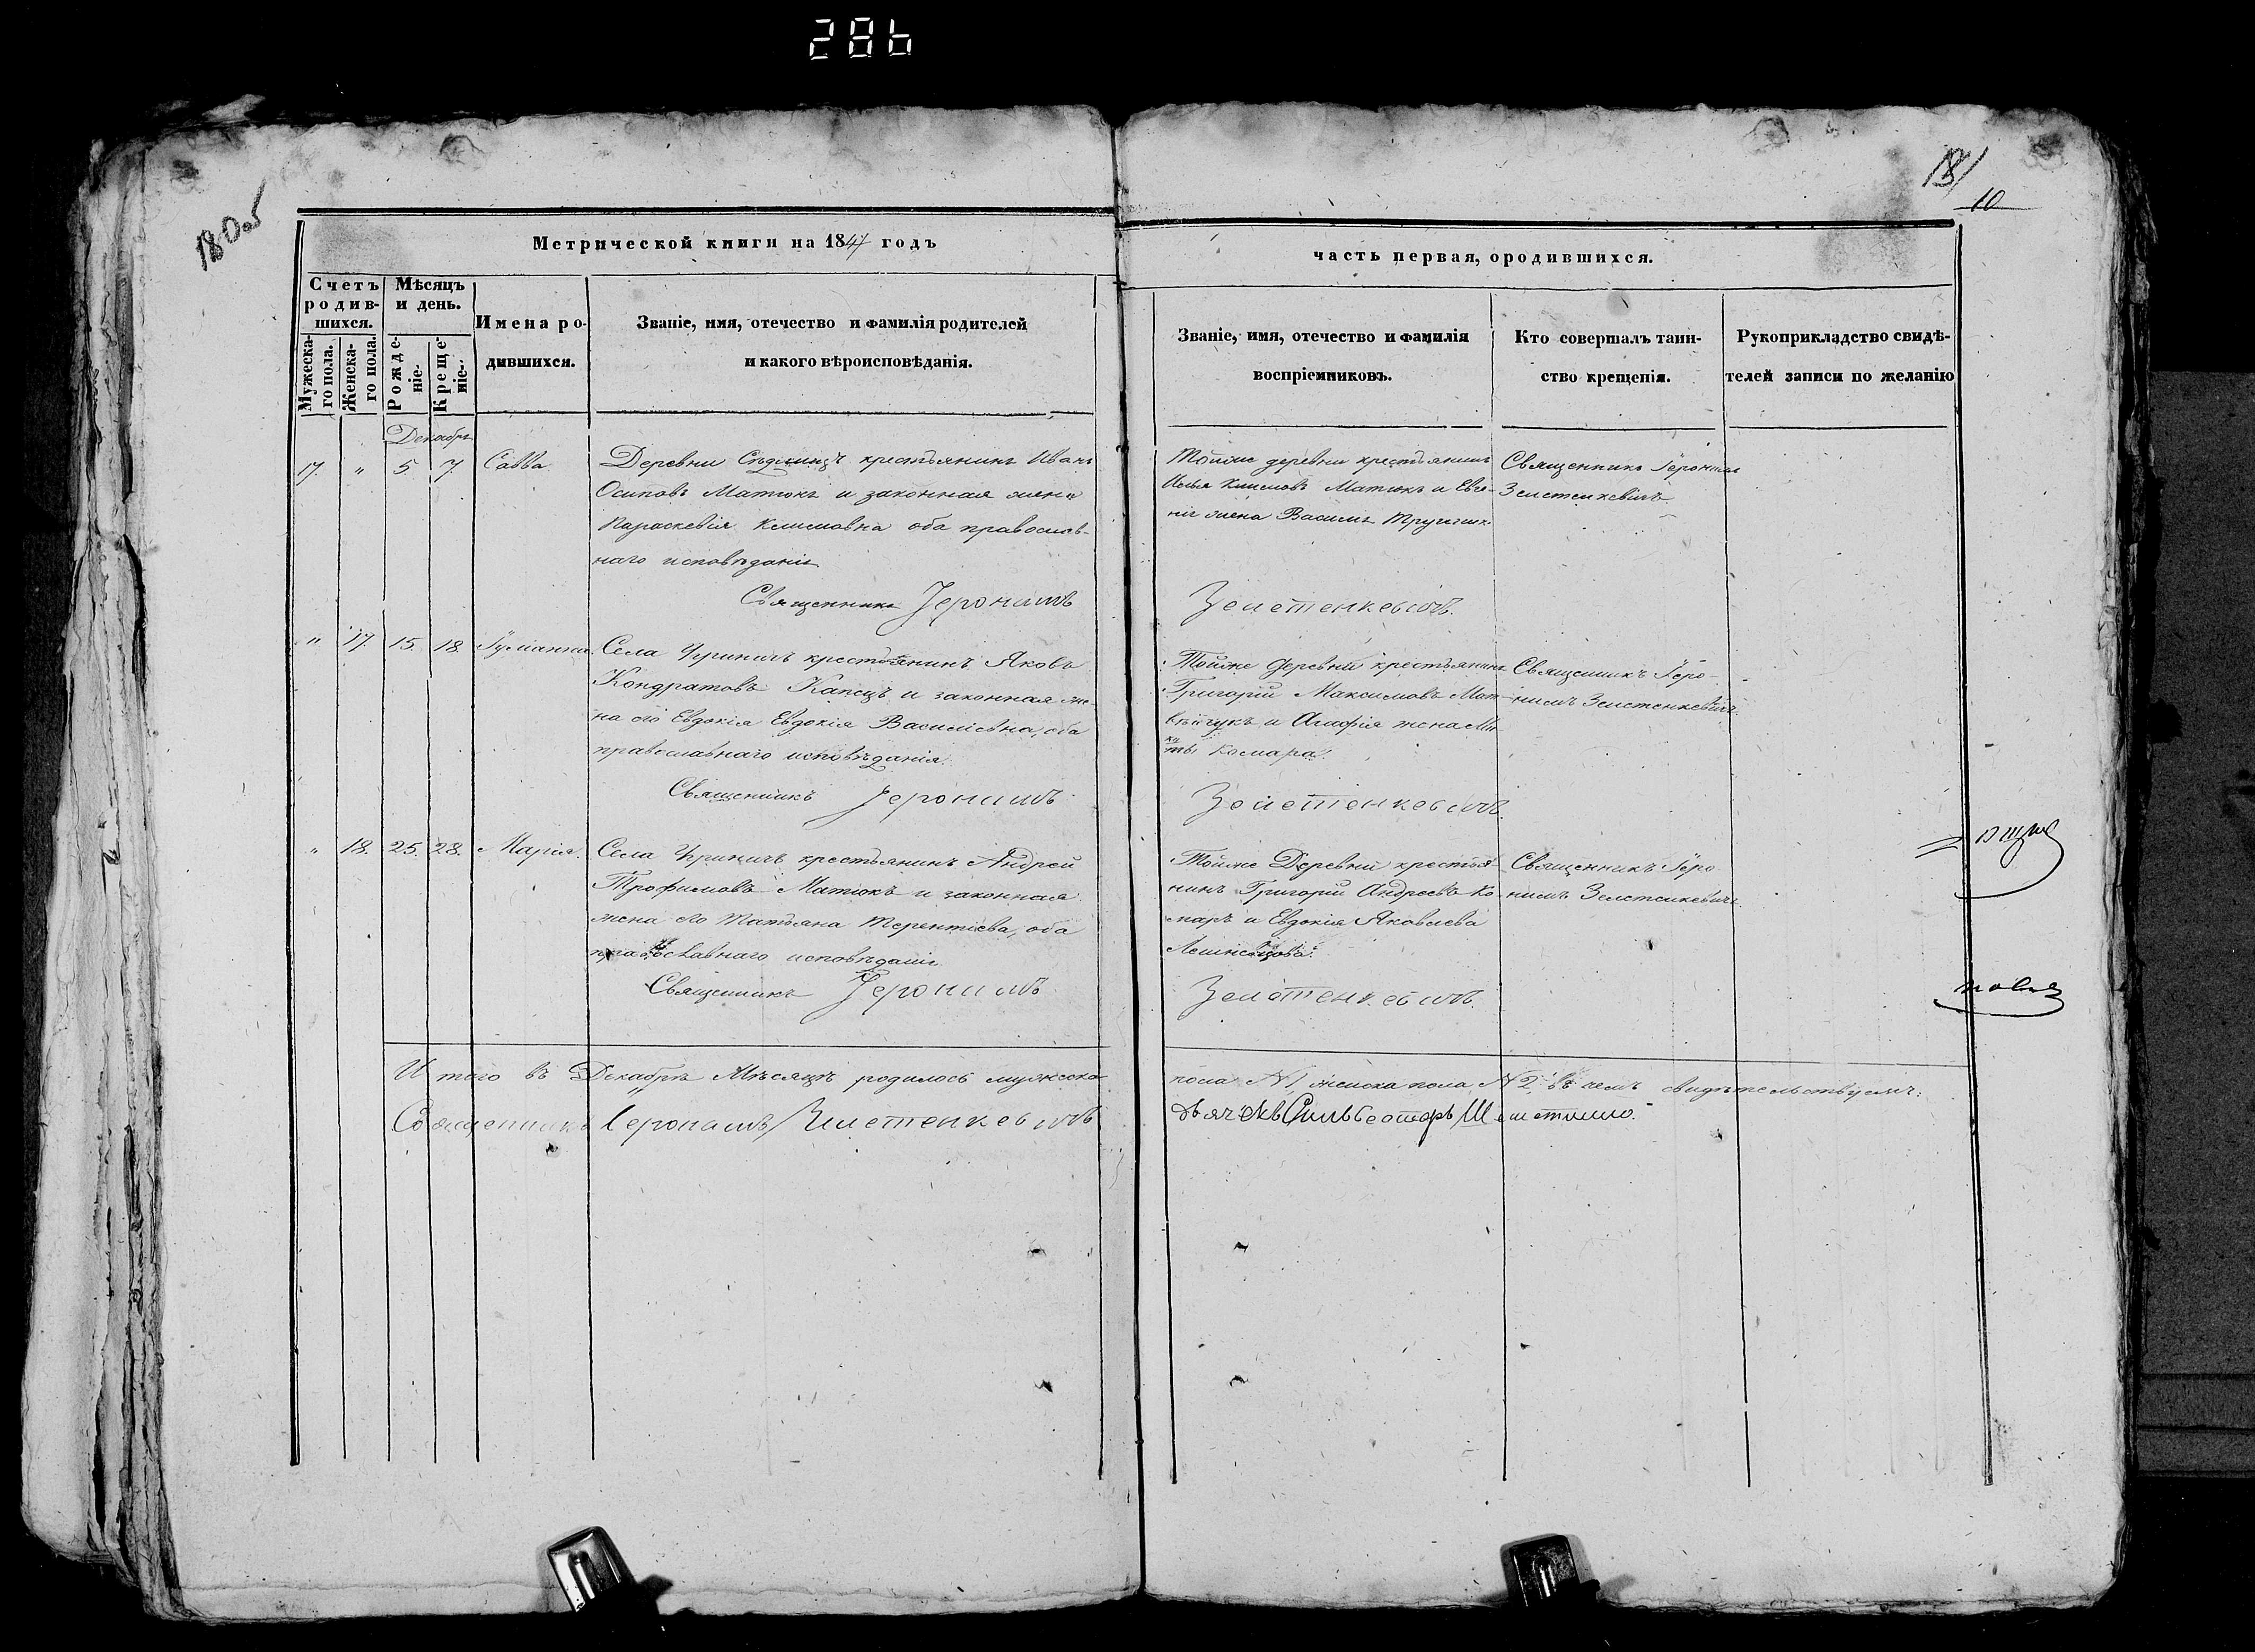 286
180 об
181
10
Метрической книги на 1847 годъ
часть первая, ородившихся.
Счетъ родив-шихся.
Мужеска-го пола.
Женска-го пола.
Мѣсяцъ и день.
Рожде-ніе.
Креще-ніе.
Имена ро-
дившихся.
Званіе, имя, отечество и фамилія родителей
и какого вѣроисповѣданія.
Званіе, имя, отечество и фамилія
воспріемниковъ.
Кто совершалъ таин-
ство крещенія.
Рукоприкладство свидѣ-
телей записи по желанію
Декабрь
17. " 5. 7. Савва.
Деревни крестьянинъ Иванъ
Осиповъ Матюкъ и законная жена
Параскевія Климовна оба православ-
наго исповѣданія
Священникъ Іеронимъ
Тойже деревни крестьянинъ
Илья Климовъ Матюкъ и Евге-
нія жена Василія
Зелетенкевичъ.
Священникъ Іеронимъ
Зелетенкевичъ
" 17. 15. 18. Іуліанна.
Села крестьянинъ Яковъ
Кондратовъ Капецъ и законная же-
на его Евдокія Евдокія Василіевна, оба
православнаго исповѣданія.
Священникъ Іеронимъ
Тойже деревни крестьянинъ
Григорій Максимовъ Мат-
вейчукъ и Агафія жена Ми
ки
ты Комара.
Зелетенкевичъ.
Священникъ Іеро-
нимъ Зелетенкевичъ.
" 18. 25. 28. Марія.
Села крестьянинъ Андрей
Трофимовъ Матюкъ и законная
жена его Татьяна Терентіева, оба
православнаго исповѣданія
Священникъ Іеронимъ
Тойже Деревни крестья
нинъ Григорій Андреевъ Ко
маръ и Евдокія Яковлева
Зелетенкевичъ.
Священникъ Іеро
нимъ Зелетенкевичъ
Итого въ Декабрѣ Мѣсяцѣ родилось мужеска
пола № 1 женска пола № 2 въ чемъ свидѣтельствуемъ:
Священникъ Іеронимъ Зилетенкевичъ
Дьячекъ Сильвестръ